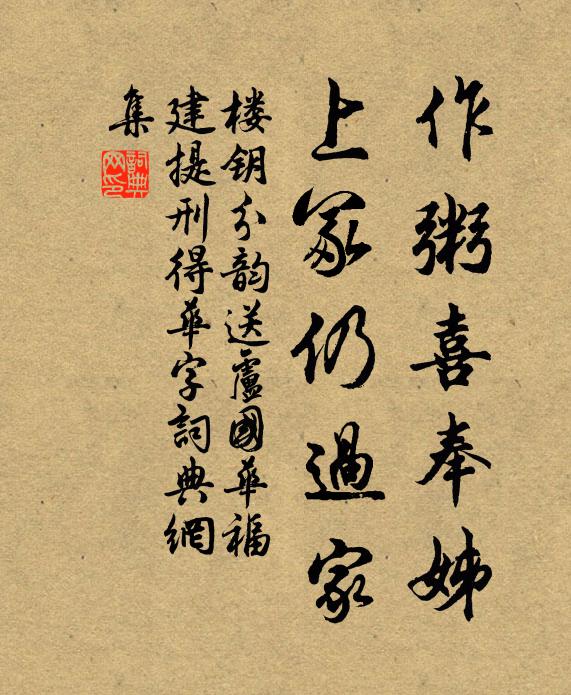 作粥喜奉姊
上冢仍過家
楼钥分韵送盧國華福
建提刑得華字詞典網
集
詞典
网印